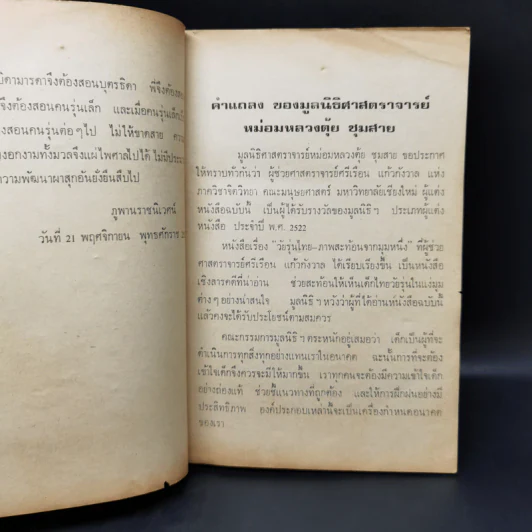 บิดามารดาจึงต้องสอนบุตรธิดา พี่จึงต้องสอน
จึงต้องสอนคนรุ่นเล็ก และเมื่อคนรุ่นเล็ก
สอนคนรุ่นต่อๆไป ไม่ให้ขาดสาย ความ
งอกงามทั้งมวลจึงแผ่ไพศาลไปได้ ไม่มีประมาณ
ความพัฒนาผาสุกอันยั่งยืนสืบไป
ภูพานราชนิเวศน์
วันที่ 21 พฤศจิกายน พุทธศักราช
คำแถลง ของมูลนิธิศาสตราจารย์
หม่อมหลวงตุ้ย ชุมสาย
มูลนิธิศาสตราจารย์หม่อมหลวงตุ้ย ชุมสาย ขอประกาศ
ให้ทราบทั่วกันว่า ผู้ช่วยศาสตราจารย์ศรีเรือน แก้วกังวาล แห่ง
ภาควิชาจิตวิทยา คณะมนุษยศาสตร์ มหาวิทยาลัยเชียงใหม่ ผู้แต่ง
หนังสือฉบับนี้ เป็นผู้ได้รับรางวัลของมูลนิธิฯ ประเภทผู้แต่ง
หนังสือ ประจำปี พ.ศ. 2522
หนังสือเรื่อง วัยรุ่นไทย–ภาพสะท้อนจากมุมหนึ่ง ที่ผู้ช่วย
ศาสตราจารย์ศรีเรือน แก้วกังวาล ได้เรียบเรียงขึ้น เป็นหนังสือ
เชิงสารคดีที่น่าอ่าน ช่วยสะท้อนให้เห็นเด็กไทยวัยรุ่นในแง่มุม
ต่างๆอย่างน่าสนใจ มูลนิธิฯหวังว่าผู้ที่ได้อ่านหนังสือฉบับนี้
แล้วคงจะได้รับประโยชน์ตามสมควร
คณะกรรมการมูลนิธิฯตระหนักอยู่เสมอว่า เด็กเป็นผู้ที่จะ
ดำเนินการทุกสิ่งทุกอย่างแทนเราในอนาคต ฉะนั้นการที่จะต้อง
เข้าใจเด็กจึงควรจะมีให้มากขึ้น เราทุกคนจะต้องมีความเข้าใจเด็ก
อย่างถ่องแท้ ช่วยชี้แนวทางที่ถูกต้อง และให้การฝึกฝนอย่างมี
ประสิทธิภาพ องค์ประกอบเหล่านี้จะเป็นเครื่องกำหนดอนาคต
ของเรา